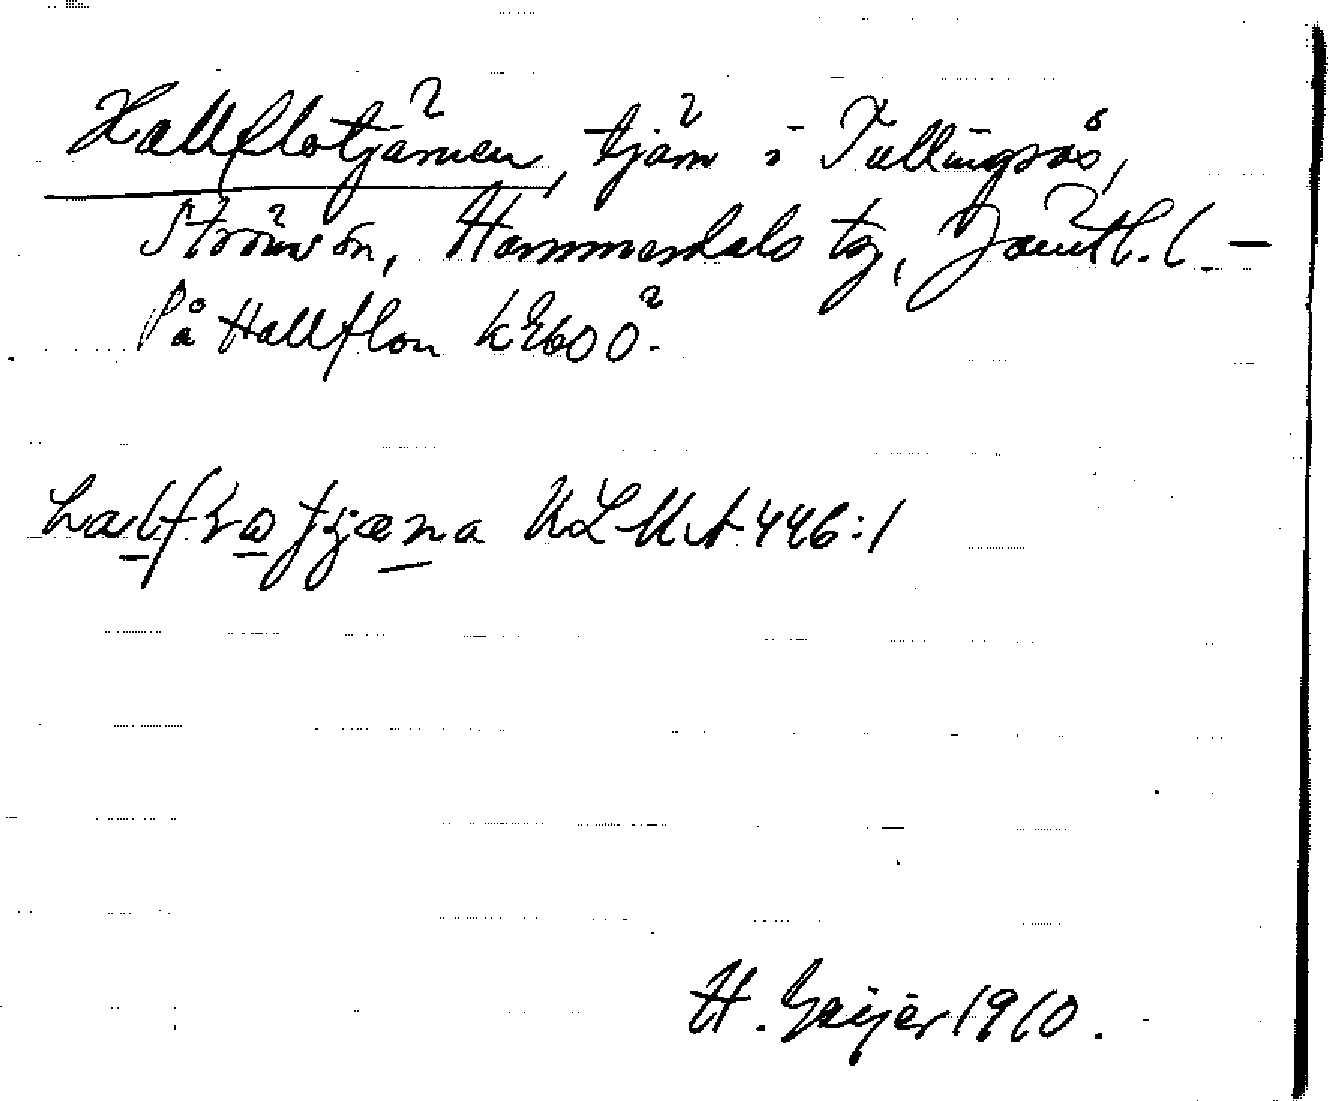 Hallflotjärnen, tjärn i Tullingsås,
Ströms sn, Hammerdals tg, Jämtl. l –
På Hallflon k
halflotjæna ULMA 446:1
H. Geijer 1910.